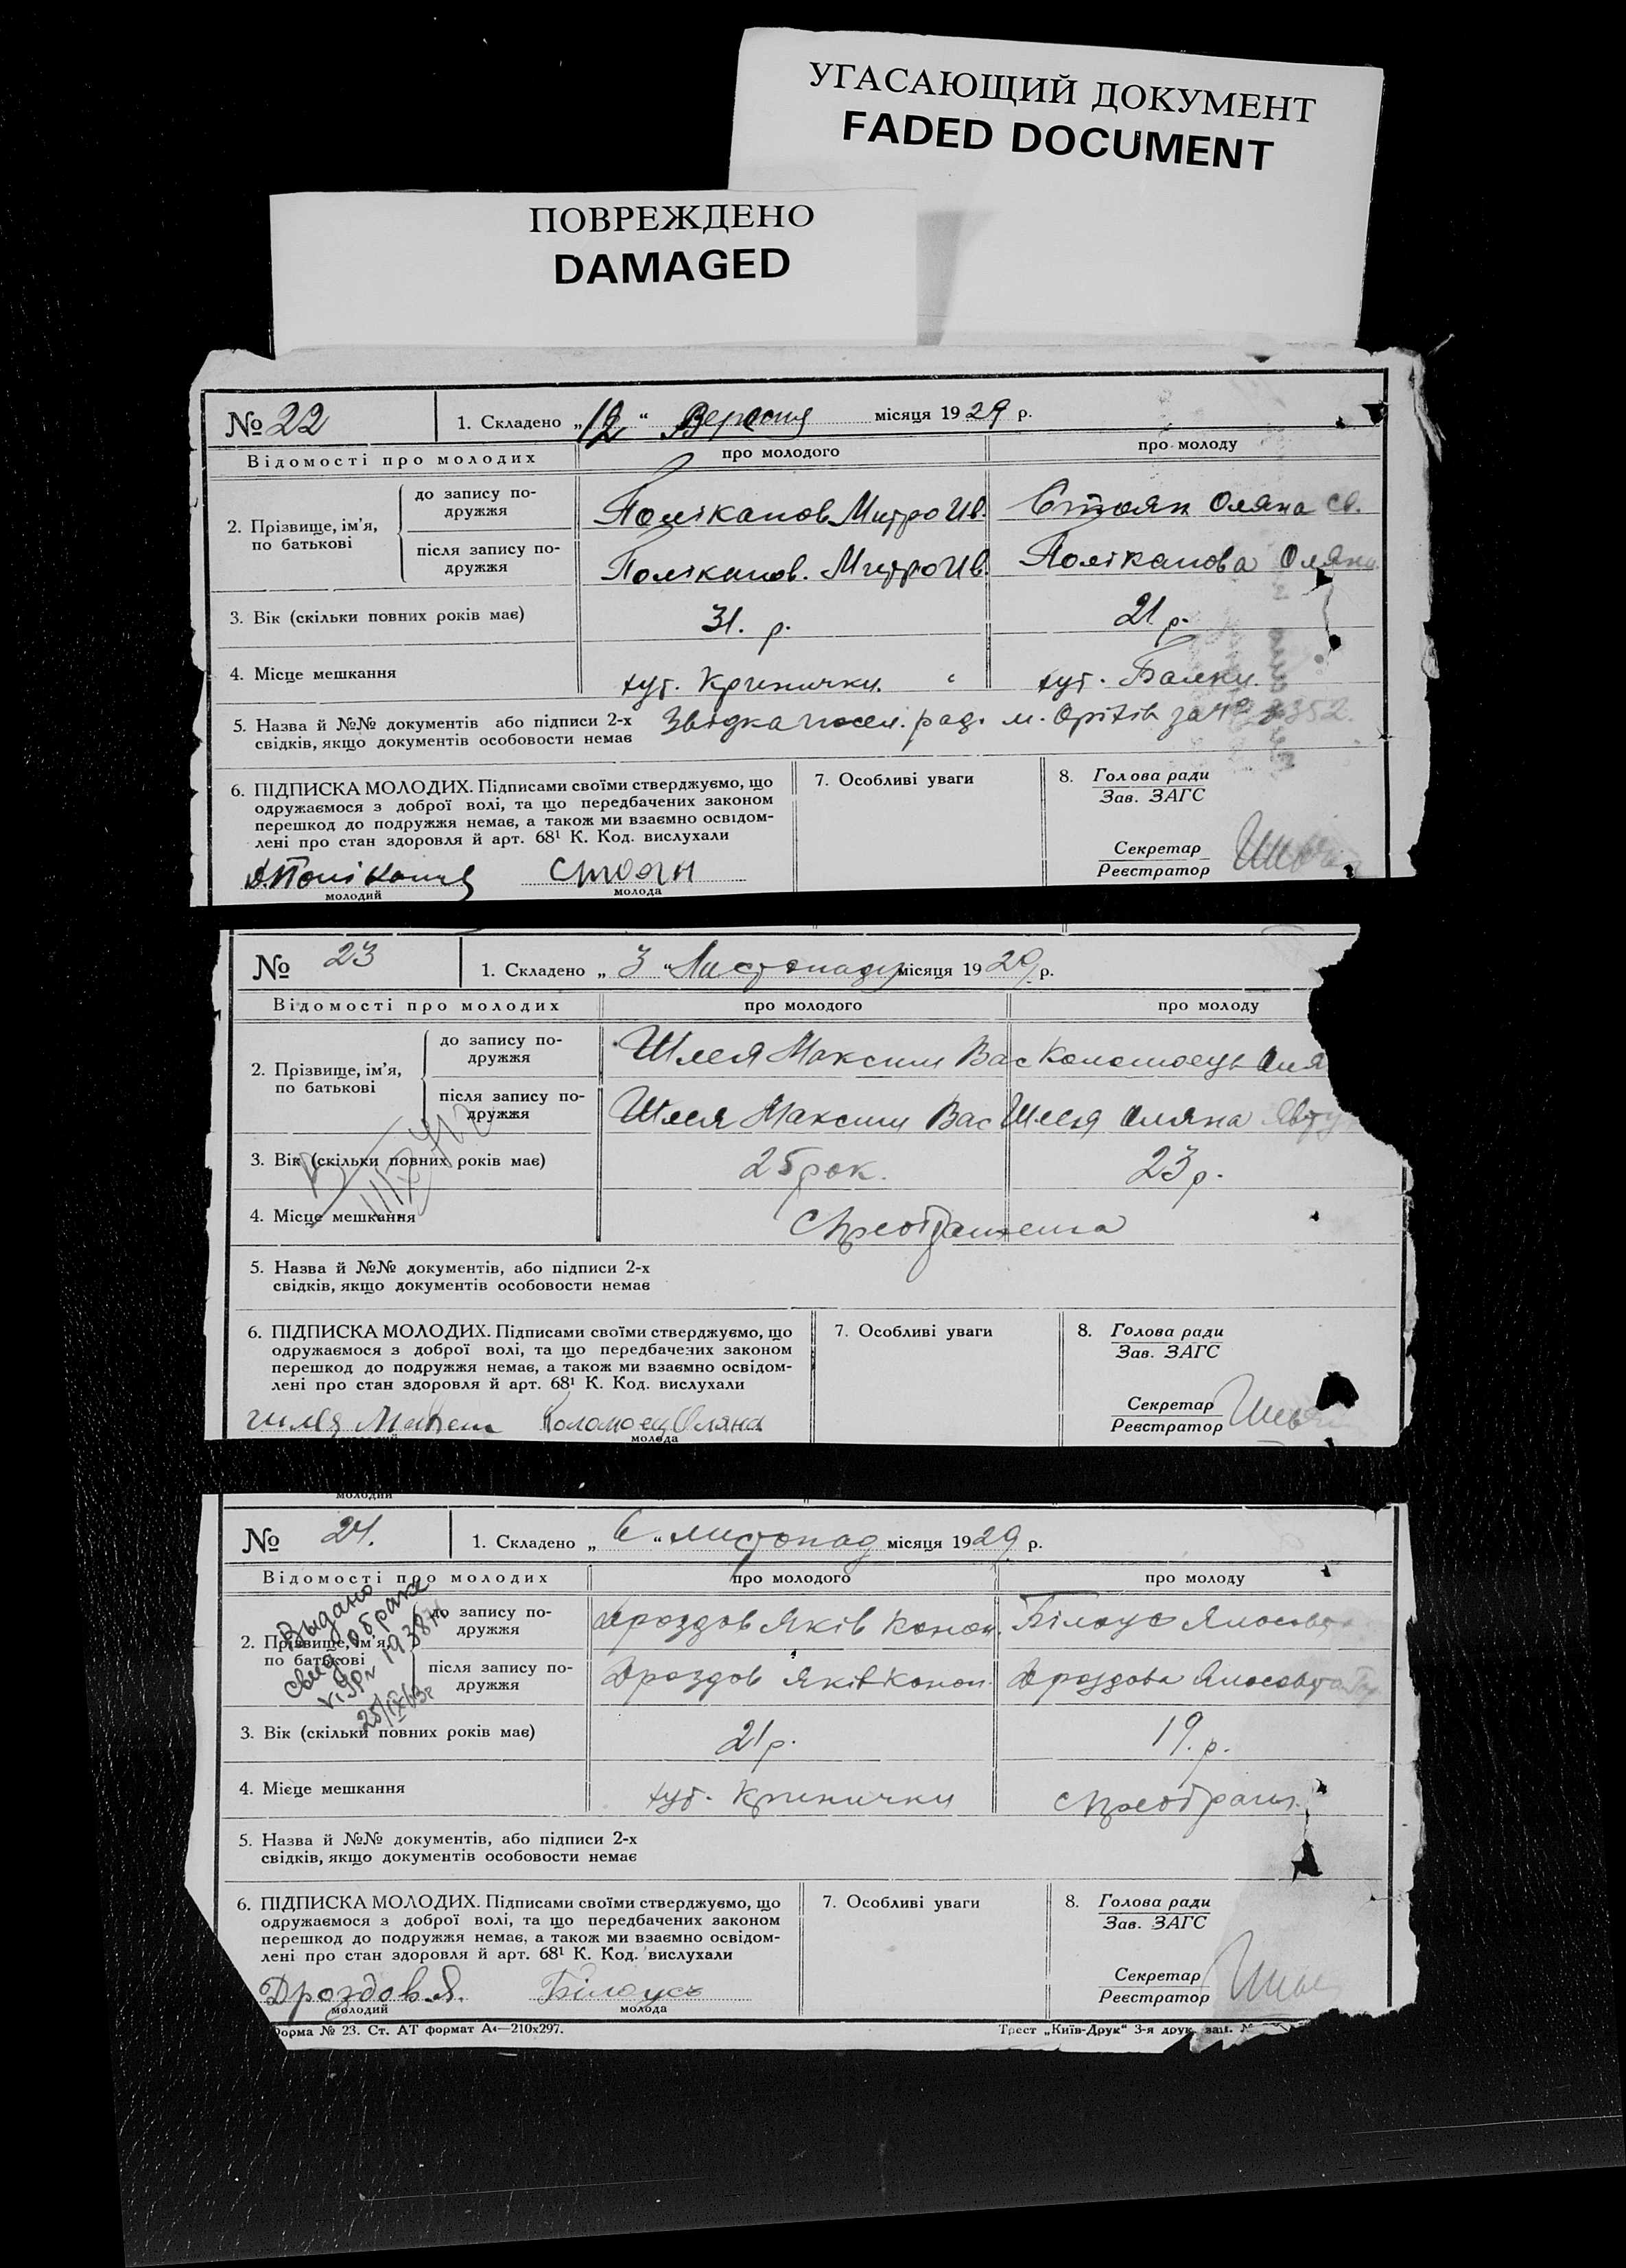 УГАСАЮЩИЙ ДОКУМЕНТ
FADED DOCUMENT
ПОВРЕЖДЕНО
DAMAGED
№ 22
1. Складено „12“ Вересня місяця 1929 р.
Відомості про молодих
про молодого
про молоду
2. Прізвище, ім'я, по батькові
до запису подружжя
Поліканов Митро Ив.
Стоян Оляна Єв.
після запису подружжя
Поліканов. Митро Ив.
Поліканова Оляна
3. Вік (скільки повних років має)
31. р.
21 р.
4. Місце мешкання
хут. Кринички.
хут. Балки.
5. Назва й №№ документів або підписи 2-х
свідків, якщо документів особовости немає
Звідка посел. рад. м. Оріхів за №
6. ПІДПИСКА МОЛОДИХ. Підписами своїми стверджуємо, що
одружаємося з доброї волі, та що передбачених законом
перешкод до подружжя немає, а також ми взаємно освідом-
лені про стан здоровля й арт. 68¹ К. Код. вислухали
Стоян
молодий
молода
7. Особливі уваги
8. Голова ради
Зав. ЗАГС
Секретар
Реєстратор
№ 23
1. Складено „3“ Листопаду місяця 1929 р.
Відомості про молодих
про молодого
про молоду
2. Прізвище, ім'я, по батькові
до запису подружжя
Шлея Максим Вас
Коломоець Оля
після запису подружжя
Шлея Максим Вас
Шлея Оляна Явту
3. Вік (скільки повних років має)
25 рок.
23 р.
4. Місце мешкання
5. Назва й №№ документів, або підписи 2-х
свідків, якщо документів особовости немає
6. ПІДПИСКА МОЛОДИХ. Підписами своїми стверджуємо, що
одружаємося з доброї волі, та що передбачених законом
перешкод до подружжя немає, а також ми взаємно освідом-
лені про стан здоровля й арт. 68¹ К. Код. вислухали
Коломоец Оляна
молода
7. Особливі уваги
8. Голова ради
Зав. ЗАГС
Секретар
Реєстратор
молодий
№ 24.
1. Складено „6“ листопад місяця 1929 р.
Відомості про молодих
про молодого
про молоду
Выдано
свид о браке
2. Прізвище, ім'я, по батькові
до запису подружжя
Дроздов Яків Конон.
Білоус
після запису подружжя
Дроздов Яків Конон.
Дроздова
3. Вік (скільки повних років має)
21 р.
19. р.
4. Місце мешкання
хут. Кринички
5. Назва й №№ документів, або підписи 2-х
свідків, якщо документів особовости немає
6. ПІДПИСКА МОЛОДИХ. Підписами своїми стверджуємо, що
одружаємося з доброї волі, та що передбачених законом
перешкод до подружжя немає, а також ми взаємно освідом-
лені про стан здоровля й арт. 68¹ К. Код. вислухали
Дроздов. Я.
Білоусь
молодий
молода
7. Особливі уваги
8. Голова ради
Зав. ЗАГС
Секретар
Реєстратор
Форма № 23. Ст. АТ формат А₄—210x297.
Трест „Київ-Друк“ 3-я друк. зам. №